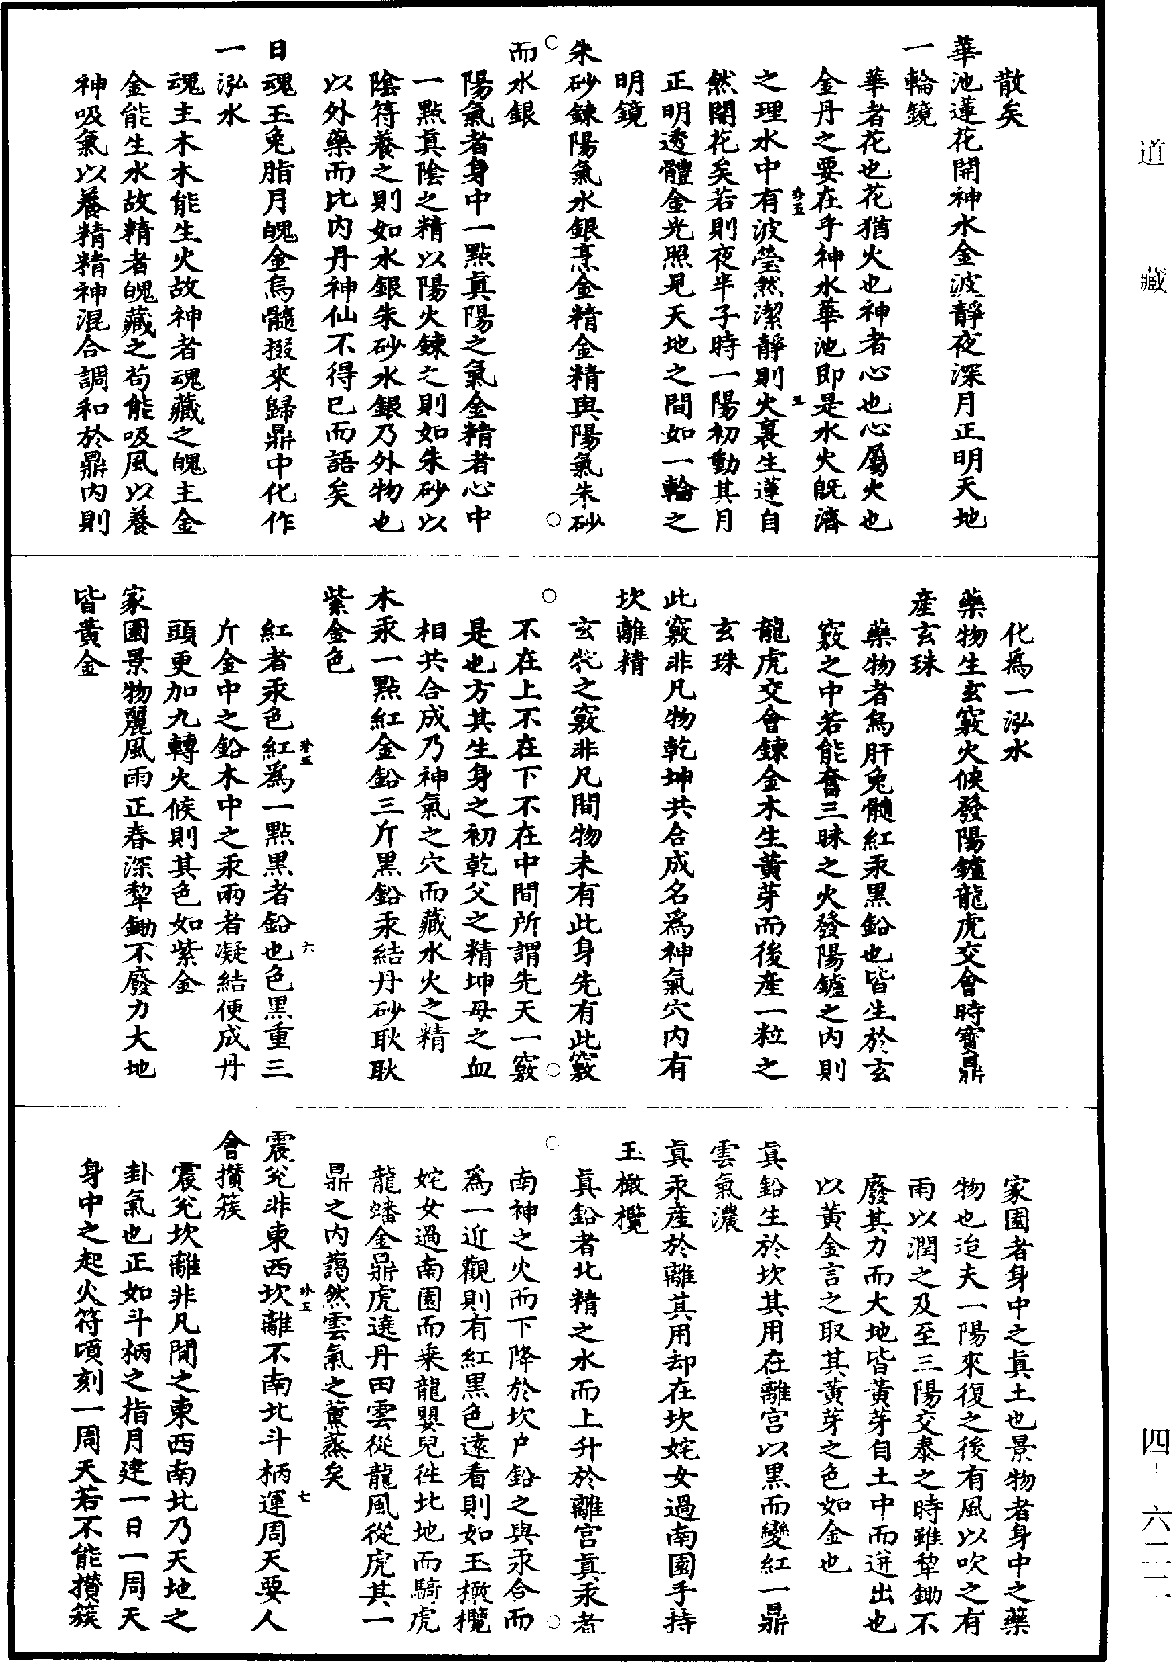 散矣
華池蓮花開神水金波靜夜深月正明天地
一輪鏡
華者花也花猶火也神者心也心屬火也
金丹之要在乎神水華池即是水火既濟
之理水中有波瑩然潔靜則火裏生蓮自
然開花矣若則夜半子時一陽初動其月
正明透體金光照見天地之間如一輪之
明鏡
朱砂鍊陽氣水銀烹金精金精與陽氣朱砂
而水銀
陽氣者身中一點真陽之氣金精者心中
一點真陰之精以陽火鍊之則如朱砂以
陰符養之則如水銀朱砂水銀乃外物也
以外藥而比內丹神仙不得已而語矣
日魂玉兔脂月魄金烏髓掇來歸鼎中化作
一泓水
魂主木木能生火故神者魂藏之魄主金
金能生水故精者魄藏之苟能吸風以養
神吸氣以養精精神混合調和於鼎內則
化爲一泓水
藥物生玄竅火候發陽鑪龍虎交會時寶鼎
産玄珠
藥物者烏肝兔髓紅汞黑鉛也皆生於玄
竅之中若能奮三昧之火發陽鑪之內則
龍虎交會鍊金木生黃芽而後産一粒之
玄珠
此竅非凡物乾坤共合成名爲神氣穴內有
坎離精
玄牝之竅非凡間物未有此身先有此竅
不在上不在下不在中間所謂先天一竅
是也方其生身之初乾父之精坤母之血
相共合成乃神氣之穴而藏水火之精
木汞一點紅金鉛三斤黑鉛汞結丹砂耿耿
紫金色
紅者汞色紅爲一點黑者鉛也色黑重三
斤金中之鉛木中之汞兩者凝結便成丹
頭更加九轉火候則其色如紫金
家園景物麗風雨正春深犂鋤不廢力大地
皆黃金
家園者身中之真土也景物者身中之藥
物也迨夫一陽來復之後有風以吹之有
雨以潤之及至三陽交泰之時雖犂鋤不
廢其力而大地皆黃芽自土中而迸出也
以黃金言之取其黃芽之色如金也
真鉛生於坎其用在離宮以黑而變紅一鼎
雲氣濃
真汞産於離其用却在坎姹女過南園手持
玉橄欖
真鉛者北精之水而上升於離宮真汞者
南神之火而下降於坎户鉛之與汞合而
爲一近觀則有紅黑色遠看則如玉橄欖
姹女過南園而乘龍嬰兒徃北地而騎虎
龍蟠金鼎虎遶丹田雲從龍風從虎其一
鼎之內藹然雲氣之薰蒸矣
震兊非東西坎離不南北斗柄運周天要人
會攅簇
震兊坎離非凡間之東西南北乃天地之
卦氣也正如斗柄之指月建一日一周天
身中之起火符頃刻一周天若不能攅簇
道藏
四